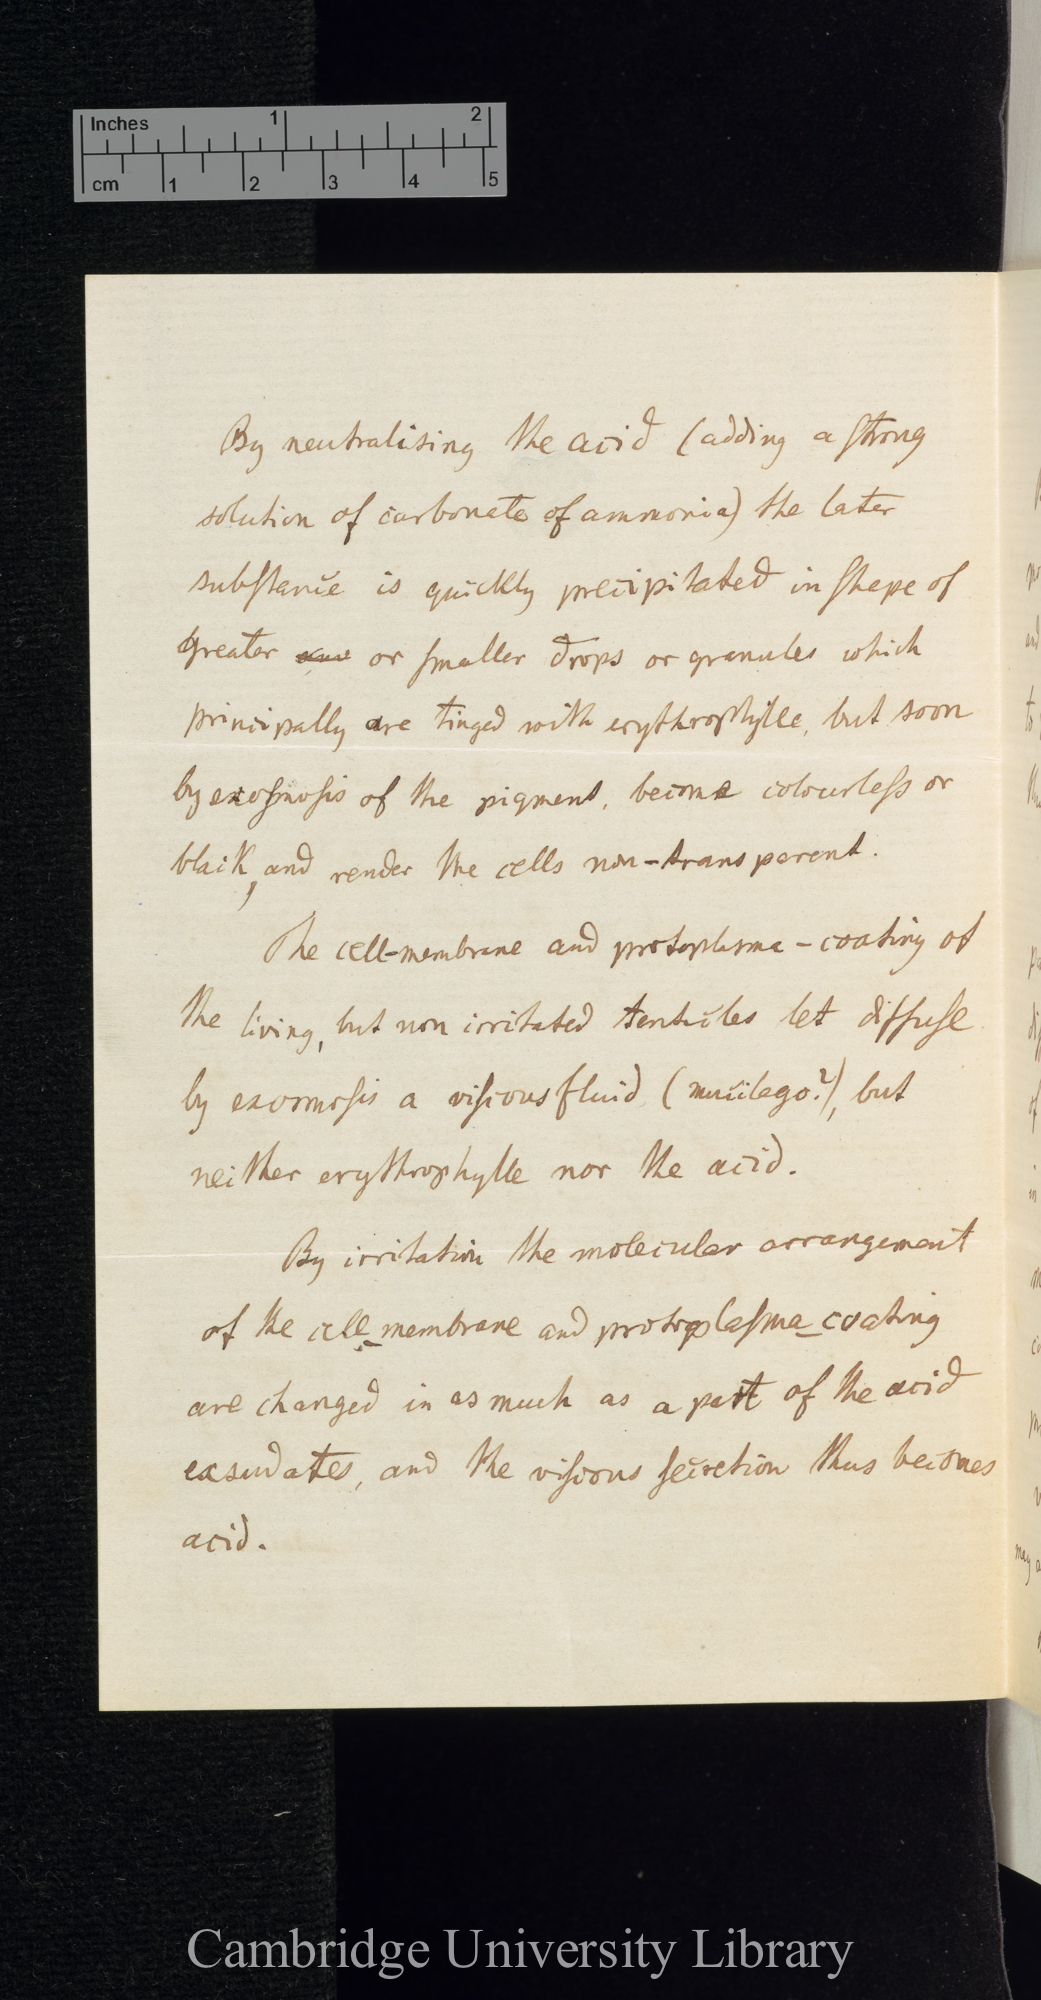 Inches 1 2
cm 1 2 3 4 5
By neutralising the acid (adding a strong
solution of carbonate of ammonia) the later
substance is quickly precipitated in shape of
greater or smaller drops or granules which
principally are tinged with erythrophylle, but soon
by exosmosis of the pigment, become colourless or
black, and render the cells non-transparent.
The cell-membrane and protoplasma-coating of
the living, but non irritated tentacles let diffuse
by exosmosis a viscous fluid (mucilago?), but
neither erythrophylle nor the acid.
By irritation the molecular arrangement
of the cell-membrane and protoplasma-coating
are changed in as much as a part of the acid
exsudates, and the viscous secretion thus becomes
acid.
Cambridge University Library